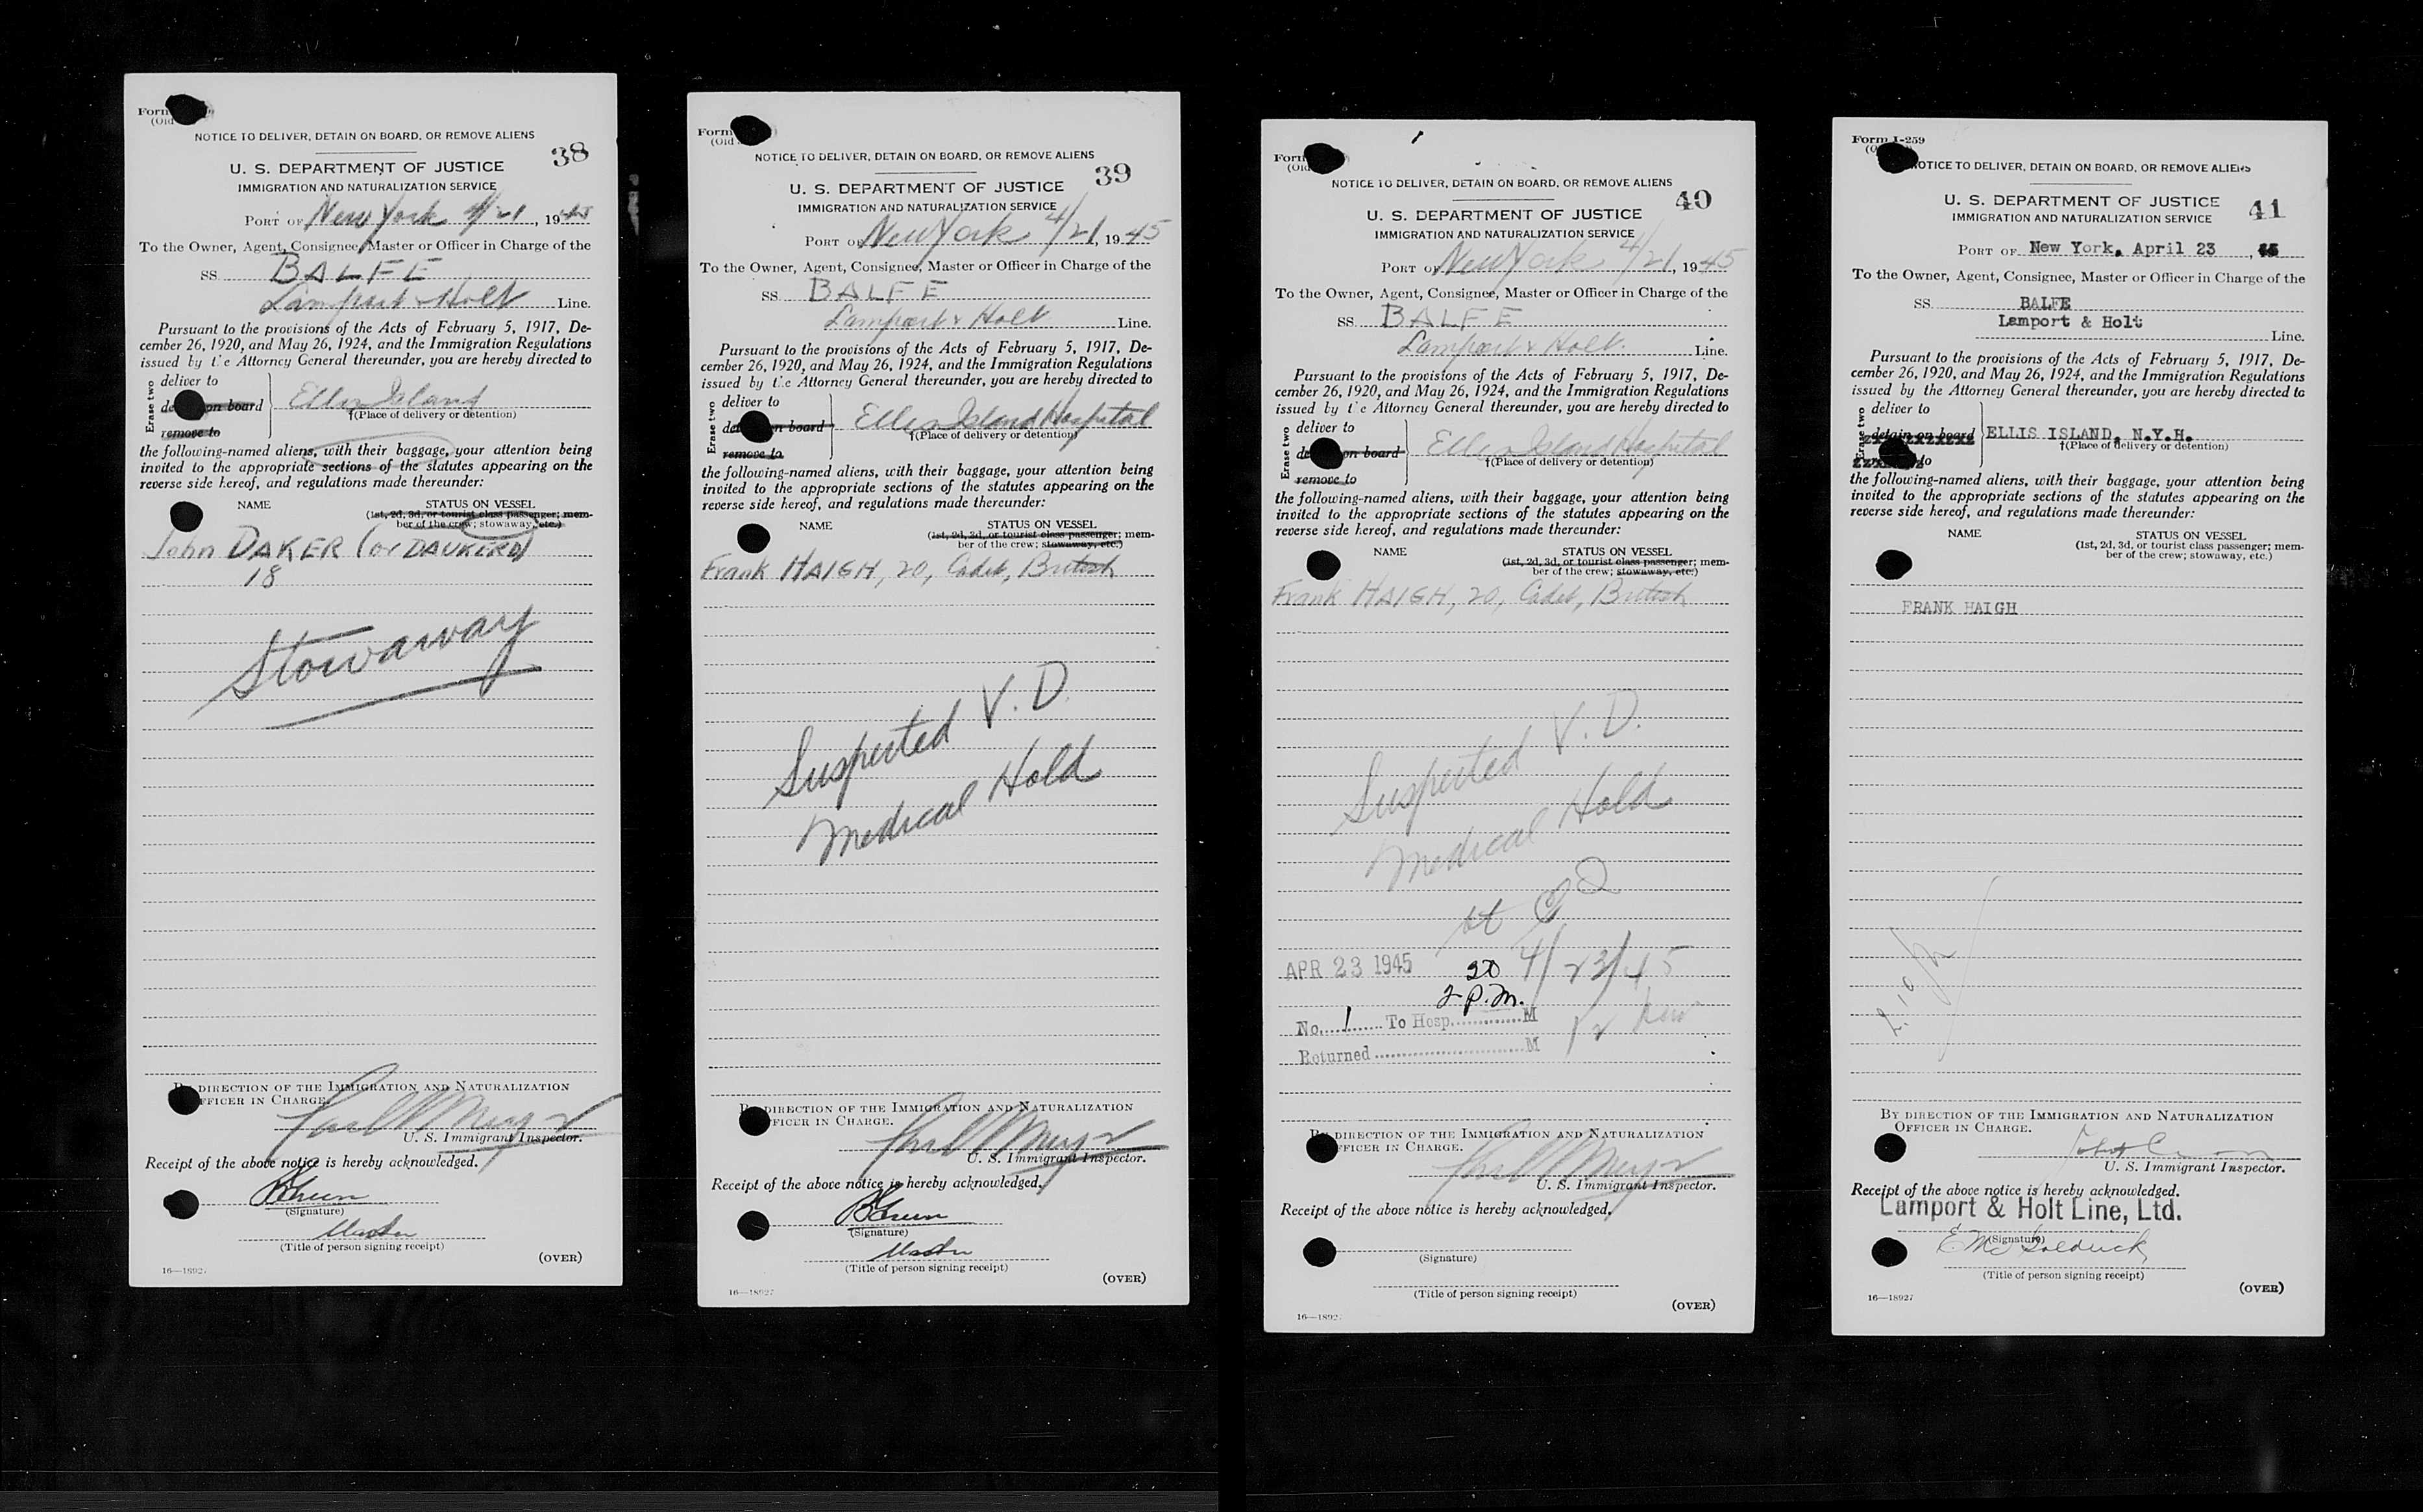 Form
(Old
NOTICE TO DELIVER, DETAIN ON BOARD, OR REMOVE ALIENS
38
U. S. DEPARTMENT OF JUSTICE
IMMIGRATION AND NATURALIZATION SERVICE
PORT OF New York 4/21, 1945
To the Owner, Agent, Consignee, Master or Officer in Charge of the
SS. BALFE
Lamport & Holt Line.
Pursuant to the provisions of the Acts of February 5, 1917, De-
cember 26, 1920, and May 26, 1924, and the Immigration Regulations
issued by the Attorney General thereunder, you are hereby directed to
Erase two
deliver to
de on board
remove to
Ellis Island
†(Place of delivery or detention)
the following-named aliens, with their baggage, your attention being
invited to the appropriate sections of the statutes appearing on the
reverse side hereof, and regulations made thereunder:
NAME STATUS ON VESSEL
(1st, 2d, 3d, or tourist class passenger; mem-
ber of the crew; stowaway, etc.)
John DAKER (or DAUKERD)
18
Stowaway
By DIRECTION OF THE IMMIGRATION AND NATURALIZATION
OFFICER IN CHARGE.
U. S. Immigrant Inspector.
Receipt of the above notice is hereby acknowledged.
(Signature)
Master
(Title of person signing receipt)
(OVER)
16—18927
Form
(Old
NOTICE TO DELIVER, DETAIN ON BOARD, OR REMOVE ALIENS
39
U. S. DEPARTMENT OF JUSTICE
IMMIGRATION AND NATURALIZATION SERVICE
PORT OF New York 4/21, 1945
To the Owner, Agent, Consignee, Master or Officer in Charge of the
SS. BALFE
Lamport & Holt Line.
Pursuant to the provisions of the Acts of February 5, 1917, De-
cember 26, 1920, and May 26, 1924, and the Immigration Regulations
issued by the Attorney General thereunder, you are hereby directed to
Erase two
deliver to
det on board
remove to
Ellis Island Hospital
†(Place of delivery or detention)
the following-named aliens, with their baggage, your attention being
invited to the appropriate sections of the statutes appearing on the
reverse side hereof, and regulations made thereunder:
NAME STATUS ON VESSEL
(1st, 2d, 3d, or tourist class passenger; mem-
ber of the crew; stowaway, etc.)
Frank HAIGH, 20, Cadet, British
Suspected V. D.
Medical Hold
By DIRECTION OF THE IMMIGRATION AND NATURALIZATION
OFFICER IN CHARGE.
U. S. Immigrant Inspector.
Receipt of the above notice is hereby acknowledged.
(Signature)
Master
(Title of person signing receipt)
(OVER)
16—18927
Form
(Old
NOTICE TO DELIVER, DETAIN ON BOARD, OR REMOVE ALIENS
40
U. S. DEPARTMENT OF JUSTICE
IMMIGRATION AND NATURALIZATION SERVICE
PORT OF New York 4/21, 1945
To the Owner, Agent, Consignee, Master or Officer in Charge of the
SS. BALFE
Lamport & Holt. Line.
Pursuant to the provisions of the Acts of February 5, 1917, De-
cember 26, 1920, and May 26, 1924, and the Immigration Regulations
issued by the Attorney General thereunder, you are hereby directed to
Erase two
deliver to
de on board
remove to
Ellis Island Hospital
†(Place of delivery or detention)
the following-named aliens, with their baggage, your attention being
invited to the appropriate sections of the statutes appearing on the
reverse side hereof, and regulations made thereunder:
NAME STATUS ON VESSEL
(1st, 2d, 3d, or tourist class passenger; mem-
ber of the crew; stowaway, etc.)
Frank HAIGH, 20, Cadet, British
Suspected V. D.
Medical Hold
APR 23 1945 4/23/45
2 P.M.
No. 1 To Hosp. M
Returned M
By DIRECTION OF THE IMMIGRATION AND NATURALIZATION
OFFICER IN CHARGE.
U. S. Immigrant Inspector.
Receipt of the above notice is hereby acknowledged.
(Signature)
(Title of person signing receipt)
(OVER)
16—18927
Form I-259
NOTICE TO DELIVER, DETAIN ON BOARD, OR REMOVE ALIENS
41
U. S. DEPARTMENT OF JUSTICE
IMMIGRATION AND NATURALIZATION SERVICE
PORT OF New York, April 23, 45
To the Owner, Agent, Consignee, Master or Officer in Charge of the
SS. BALFE
Lamport & Holt
Line.
Pursuant to the provisions of the Acts of February 5, 1917, De-
cember 26, 1920, and May 26, 1924, and the Immigration Regulations
issued by the Attorney General thereunder, you are hereby directed to
Erase two
deliver to
detain on board
to
ELLIS ISLAND, N.Y.H.
†(Place of delivery or detention)
the following-named aliens, with their baggage, your attention being
invited to the appropriate sections of the statutes appearing on the
reverse side hereof, and regulations made thereunder:
NAME STATUS ON VESSEL
(1st, 2d, 3d, or tourist class passenger; mem-
ber of the crew; stowaway, etc.)
FRANK HAIGH
BY DIRECTION OF THE IMMIGRATION AND NATURALIZATION
OFFICER IN CHARGE.
U. S. Immigrant Inspector.
Receipt of the above notice is hereby acknowledged.
Lamport & Holt Line, Ltd.
(Signature)
(Title of person signing receipt)
(OVER)
16—18927